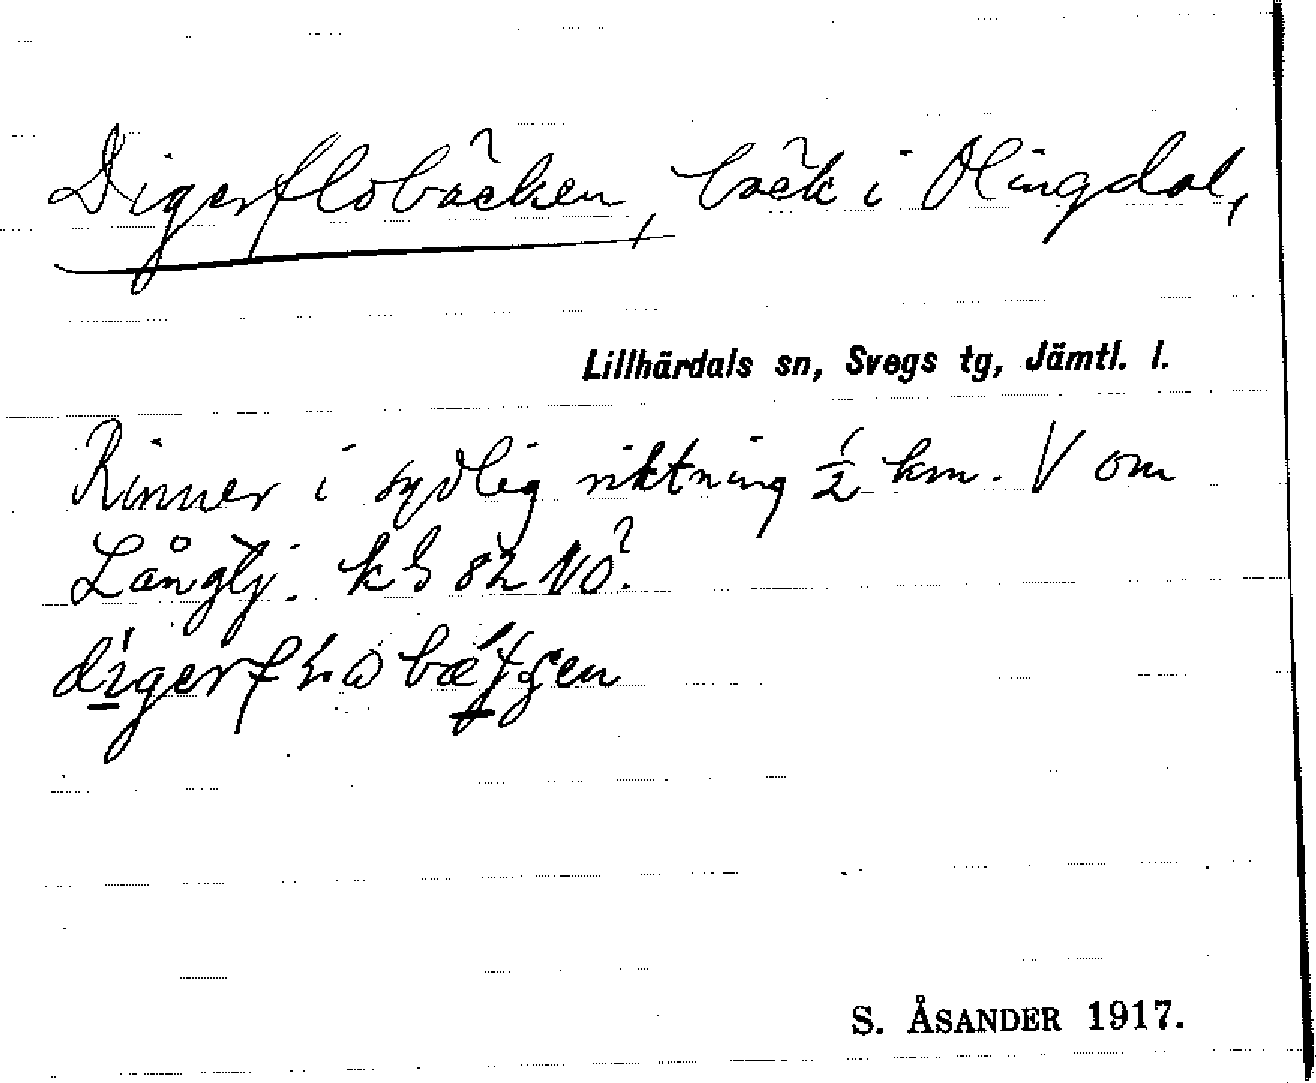 Digerflobäcken, bäck i Olingdal,
Lillhärdals sn, Svegs tg, Jämtl. l.
Rinner i sydlig riktning ½ km. V om
Långtj. kbl 82 NÖ.
S. ÅSANDER 1917.